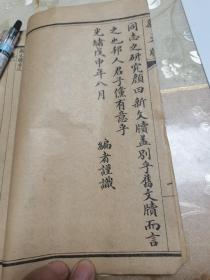 同志之研究顔曰新文牘蓋別乎舊文牘而言
之也邦人君子儻有意乎
光緒戊申年八月
編者謹識